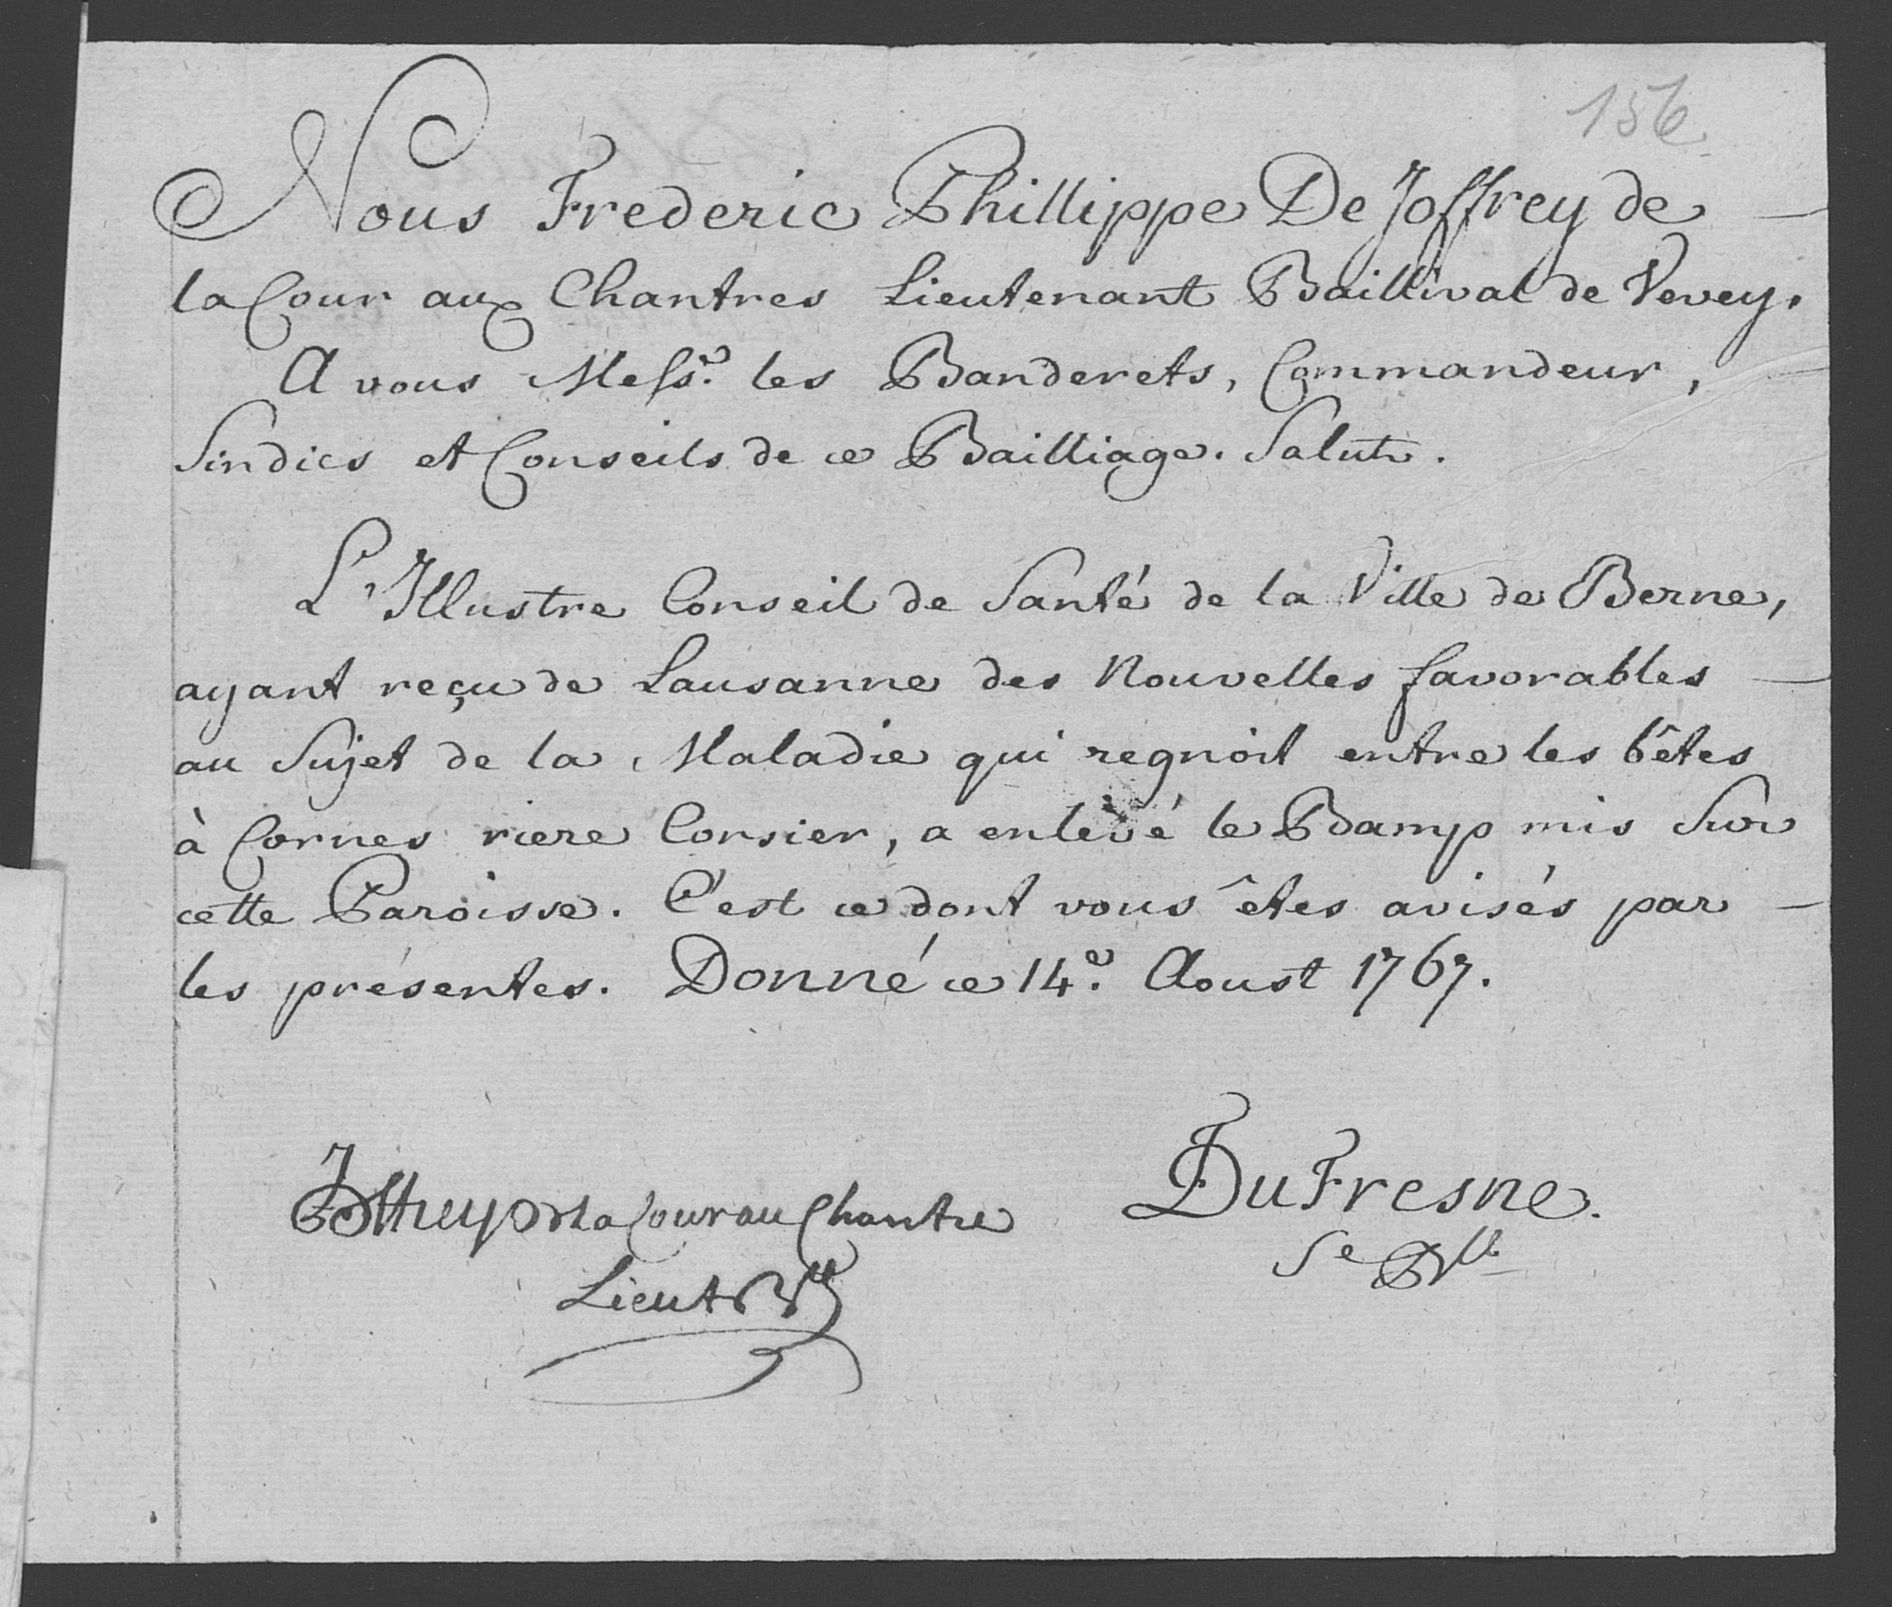 156
Nous Frederic Phillippe De Joffrey de
la Cour aux Chantres Lieutenant Baillival de Vevey.
A vous Messrs. les Banderets, Commandeur,
Sindics et Conseils de ce Bailliage. Salut.
L'Illustre Conseil de Santé de la Ville de Berne,
ayant reçu de Lausanne des Nouvelles favorables
au Sujet de la Maladie qui regnoit entre les bêtes
à Cornes riere Corsier, a enlevé le Bamp mis Sur
cette Paroisse. C'est ce dont vous êtes avisés par
les présentes. Donné ce 14e. Aoust 1767.
Joffrey De la Cour au Chantre
Lieut Bll
DuFresne.
Se Bll